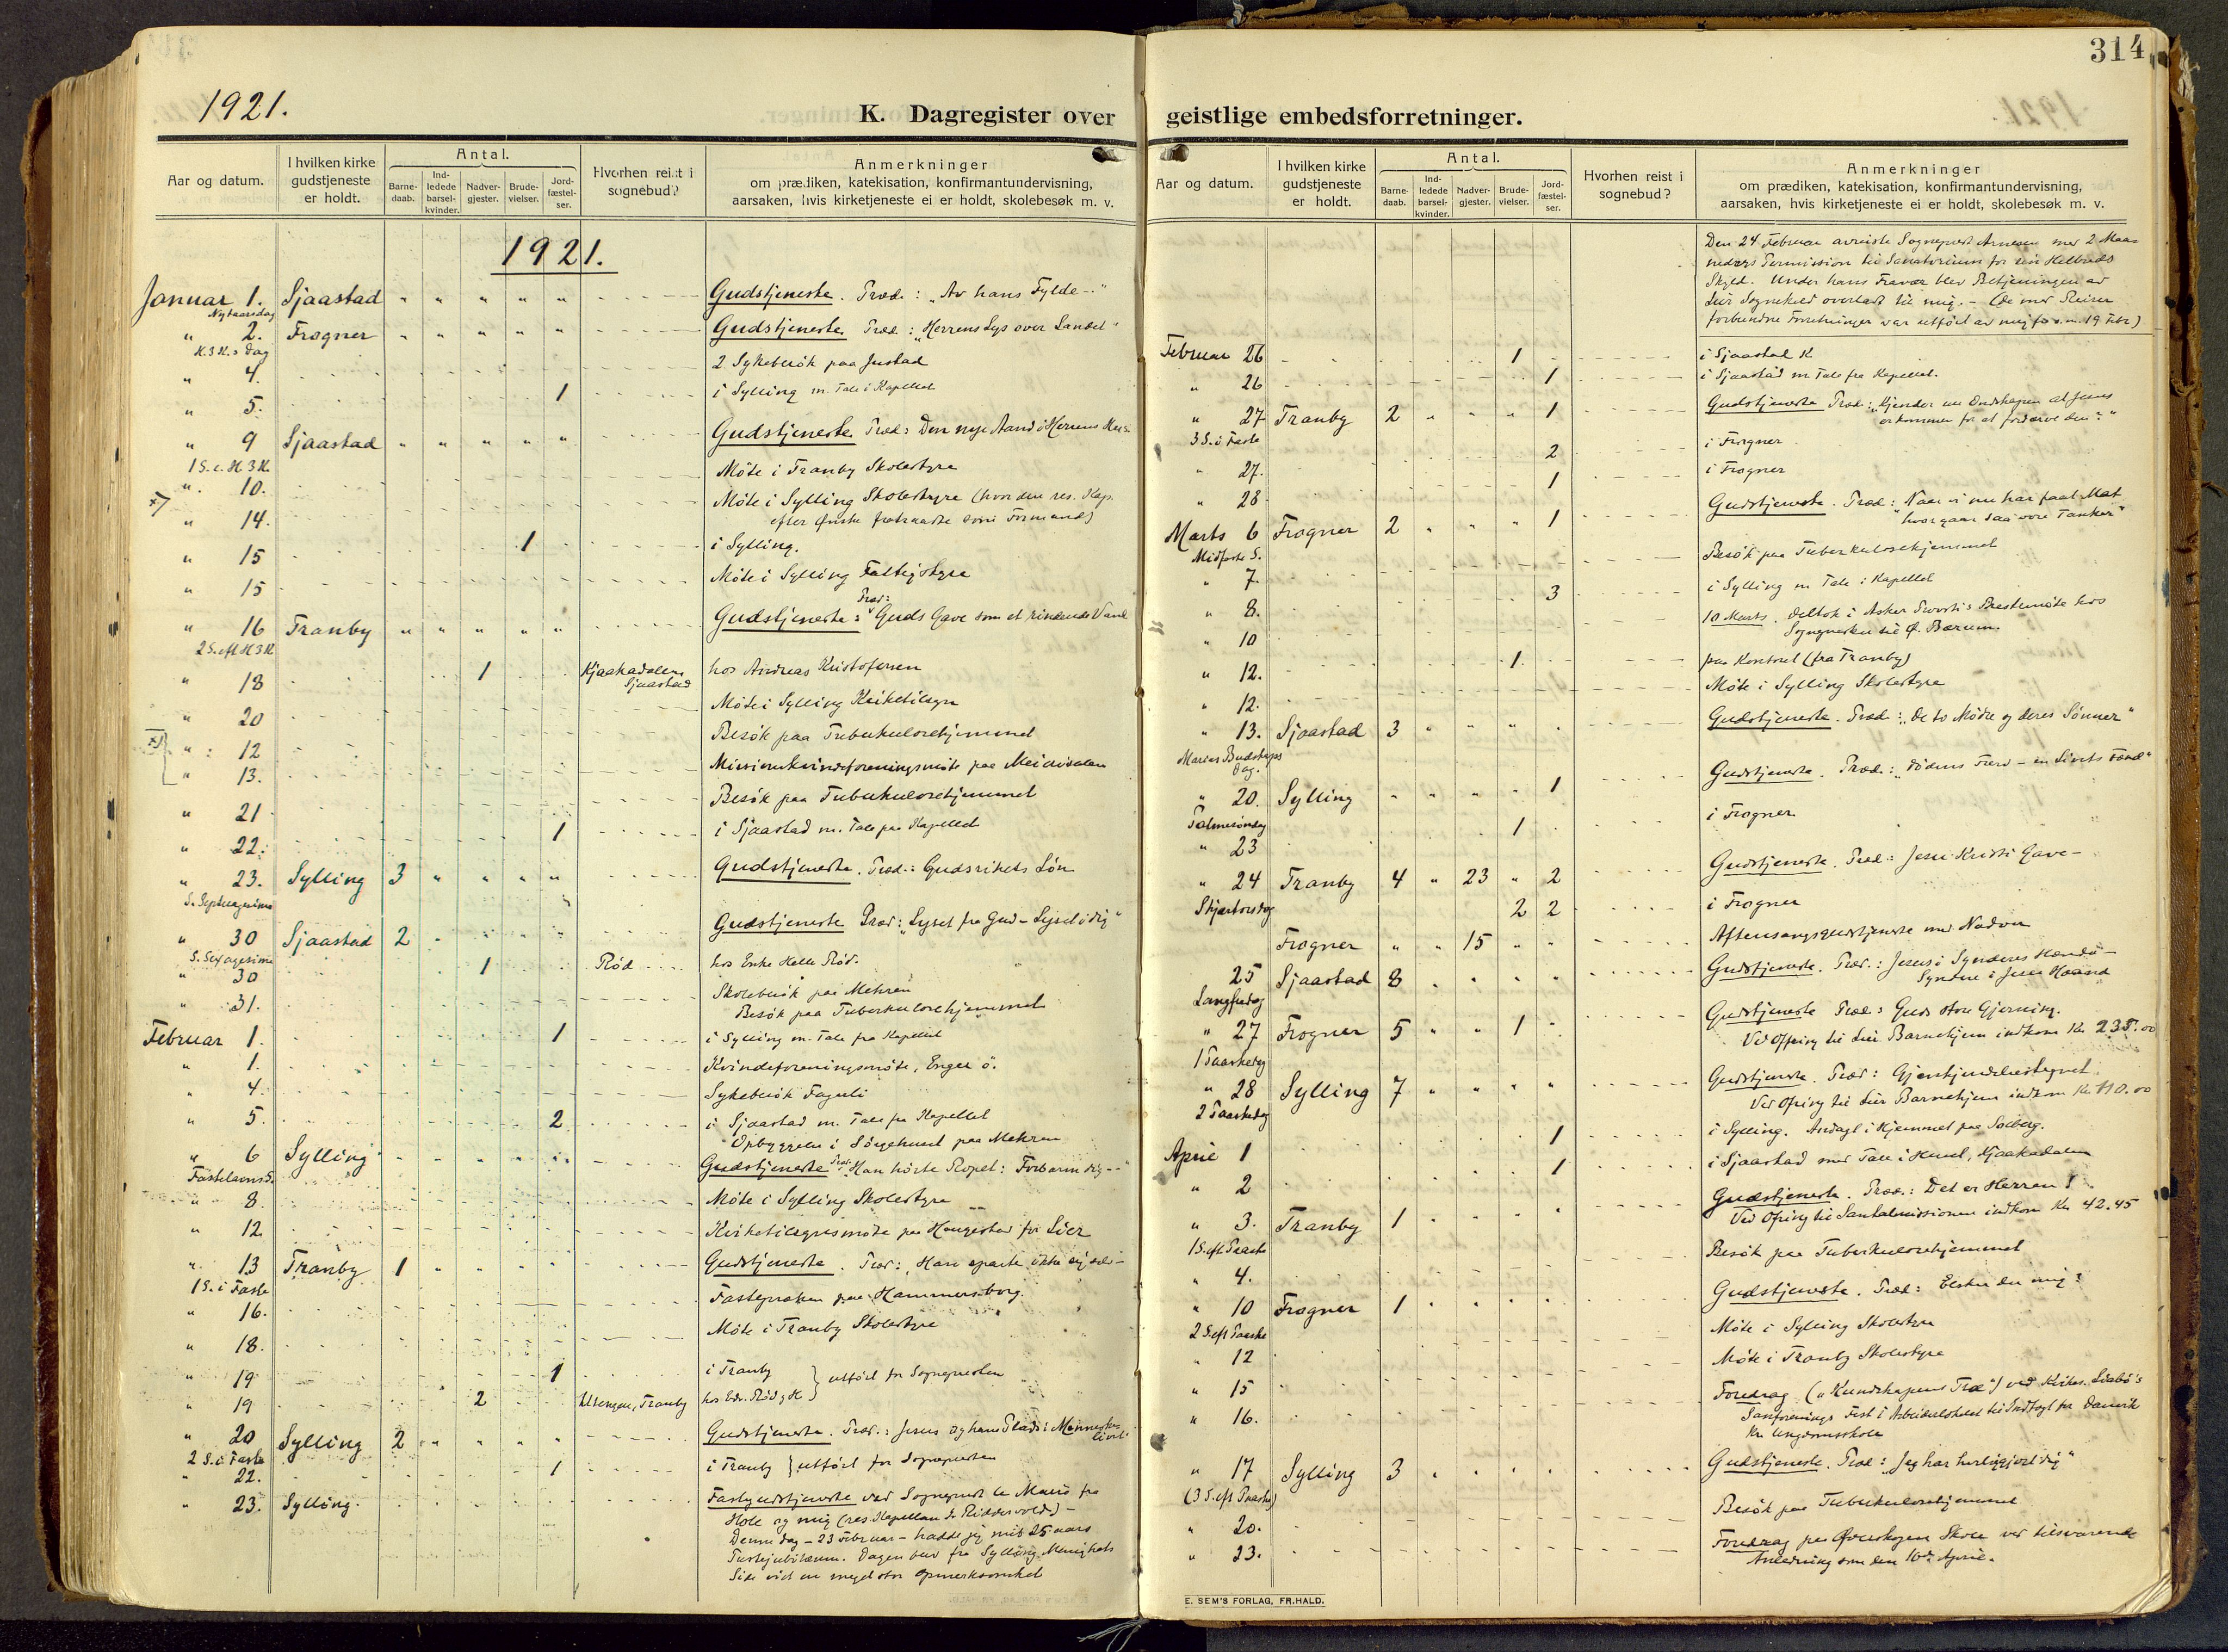 314
1921.
K. Dagregister over geistlige embedsforretninger.
Aar og datum.
I hvilken kirke gudstjeneste er holdt.
Antal.
Barne-daab.
Ind-ledede barsel-kvinder.
Nadver-gjester.
Brude-vielser.
Jord-fæstel-ser.
Hvorhen reist i sognebud?
Anmerkninger
om prædiken, katekisation, konfirmantundervisning,
aarsaken, hvis kirketjeneste ei er holdt, skolebesøk m. v.
1921.
Januar 1. Sjaastad " " " " " Gudstjeneste. Præd.: "Av hans Fylde -"
Nytaarsdag
" 2. Frogner " " " " " Gudstjeneste Præd.: "Herrens Lys over Landet"
H.3K.s dag
" 4. 2 Sykebesök paa Justad
" 5. 1 i Sylling m. Tale i Kapellet
" 9 Sjaastad " " " " " Gudstjeneste Præd: Den nye Aand i Herrens
1 S. e. H 3 K.
" 10. Möte i Tranby Skolestyre
x) " 14. Möte i Sylling Skolestyre (hvor den res. Kap.
efter Ønske fratraadte som Formand)
" 15 1 i Sylling.
" 15 Möte i Sylling Fattigstyre
" 16 Tranby " " " " " Gudstjeneste: Præd: Guds Gave som et rindende Vand
2 S. eft H3K
" 18 1 Kjaakadalen, Sjaastad hos Andreas Kristofersen
" 20 Möte i Sylling Kirketilsyn
x) " 12 Besök paa Tuberkulosehjemmet
" 13. Missionskvindeforeningsmöte paa
" 21 Besök paa Tuberkulosehjemmet
" 22. 1 i Sjaastad m. Tale paa Kapellet
" 23. Sylling 3 " " " " Gudstjeneste. Præd.: Gudsrikets Løn
S. Septuagesima
" 30 Sjaastad 2 Gudstjeneste Præd: "Lyset fra Gud - Lyset i dig"
S. Sexagesima
" 30 1 Röd hos Enke Helle Röd.
" 31. Skolebesök paa Mehren
Besök paa Tuberkulosehjemmet
Februar 1. 1 i Sylling m. Tale fra Kapellet
" 1. Kvindeforeningsmöte, Enger ö.
" 4. Sykebesök Fagerli
" 5. 2 i Sjaastad m. Tale fra Kapellet
Opbyggelse i Sörgehuset paa Mehren
" 6 Sylling Gudstjeneste Præd. "Han hörte Ropet: Forbarm dig --"
Fastelavns S.
" 8. Möte i Sylling Skolestyre
" 12. Kirketilsynsmöte paa Haugestad for Lier
" 13 Tranby 1 Gudstjeneste. Præd.: "Han sparte ikke
1 S. i Faste
" 16. Fasteprœken paa Hammersborg.
" 18. Möte i Tranby Skolestyre
" 19 1 i Tranby } utfört for Sognepresten
" 19 2 Utengen, Tranby hos
" 20 Sylling 2 Gudstjeneste. Præd.: Jesus og hans Plads i Menneskelivet
2 S. i Faste
" 22. 1 i Tranby } utfört for Sognepresten
" 23. Sylling. Fastegudstjeneste ved Sogneprest
Hole og mig (res. Kapellan Riddervold) -
Denne dag - 23 Februar - hadde jeg mit 25 aars
Prestejubilæum. Dagen blev fra Sylling Menigheds
Side vist en meget stor Opmerksomhet
Aar og datum.
I hvilken kirke gudstjeneste er holdt.
Antal.
Barne-daab.
Ind-ledede barsel-kvinder.
Nadver-gjester.
Brude-vielser.
Jord-fæstel-ser.
Hvorhen reist i sognebud?
Anmerkninger
om prædiken, katekisation, konfirmantundervisning,
aarsaken, hvis kirketjeneste ei er holdt, skolebesøk m. v.
Den 24 Februar avreiste Sogneprest Arnesen med 2 Maa-
neders Permission til Sanatorium for sin Helbreds
Skyld. Under hans Fravær blev Betjeningen av
Lier Sognekald overladt til mig. - (De med Reiser
forbundne Forretninger var utfört av mig fra 19 Febr.)
Februar 26 1 i Sjaastad K
" 26 1 i Sjaastad m Tale fra Kapellet.
" 27 Tranby 2 " " " 1 Gudstjeneste Præd: "Kjender nu Ondskapen at Jesus
3 S. i Faste er kommen for at fordærve den?"
" 27. 2 i Frogner
" 28 1 i Frogner
Marts 6 Frogner 2 " " " 1 Gudstjeneste. Præd: "Naar vi nu har faat Mat
Midfaste S. hvor gaar saa vore Tanker"
" 7. Besök paa Tuberkulosehjemmet
" 8. 3 i Sylling m Tale i Kapellet
" 10 10 Marts. Deltok i Asker Provsti's Prestemöte hos
Sognepresten til Ø. Bærum.
" 12. 1 paa Kontoret (fra Tranby)
" 12. Möte i Sylling Skolestyre
" 13. Sjaastad 3 " " " Gudstjeneste. Præd: "De to Mödre og deres Sönner"
Marias Budskaps dag.
" 20. Sylling " " " " 1 Gudstjeneste. Præd.: "Dödens Færd - en Livets Færd"
Palmesöndag
" 23 1 i Frogner
" 24 Tranby 4 " 23 " 2 Gudstjeneste. Præd: Jesu Kristi Gave -
Skjærtorsdag 2 2 i Frogner
Frogner " " 15 " " Aftensangsgudstjeneste med Nadver
25 Sjaastad 8 Gudstjeneste. Præd.: Jesus i Synderes Hænder -
Langfredag Syndere i Jesu Haand
" 27 Frogner 5 " " 1 Gudstjeneste Præd: Guds store Gjerning.
1 Paaskedag Ved Offring til Lier Barnehjem indkom Kr 235.00
" 28 Sylling 7 " " " " Gudstjeneste. Præd: Gjenkjendelsestegnet.
2 Paaskedag Ved Ofring til Lier Barnehjem indkom Kr 110.00
April 1 1 i Sylling. Andagt i Hjemmet paa Solberg.
" 2 1 i Sjaastad med Tale i Huset, Kjaakadalen
" 3. Tranby 1 Gudstjeneste. Præd.: Det er Herren!
1 S. eft Paaske Ved Ofring til Santalmissionen indkom Kr 42.45
" 4. Besök paa Tuberkulosehjemmet
" 10 Frogner 1 Gudstjeneste. Præd: Elsker du mig?
2 S. eft Paaske
" 12 Möte i Sylling Skolestyre
" 15 Möte i Tranby Skolestyre
" 16. Foredrag ("Kundskapens Træ") ved
Sanforenings Fest i Arbeiderlokalet til Indtægt for Danvik
Kr. Ungdomsskole
" 17 Sylling 3 Gudstjeneste. Præd: "Jeg har herliggjort dig"
(3 S. eft Paaske)
" 20. Besök paa Tuberkulosehjemmet
" 23. Foredrag paa Øverskogen Skole ved tilsvarende
Anledning som den 16de April.
E. SEM'S FORLAG, FR.HALD.